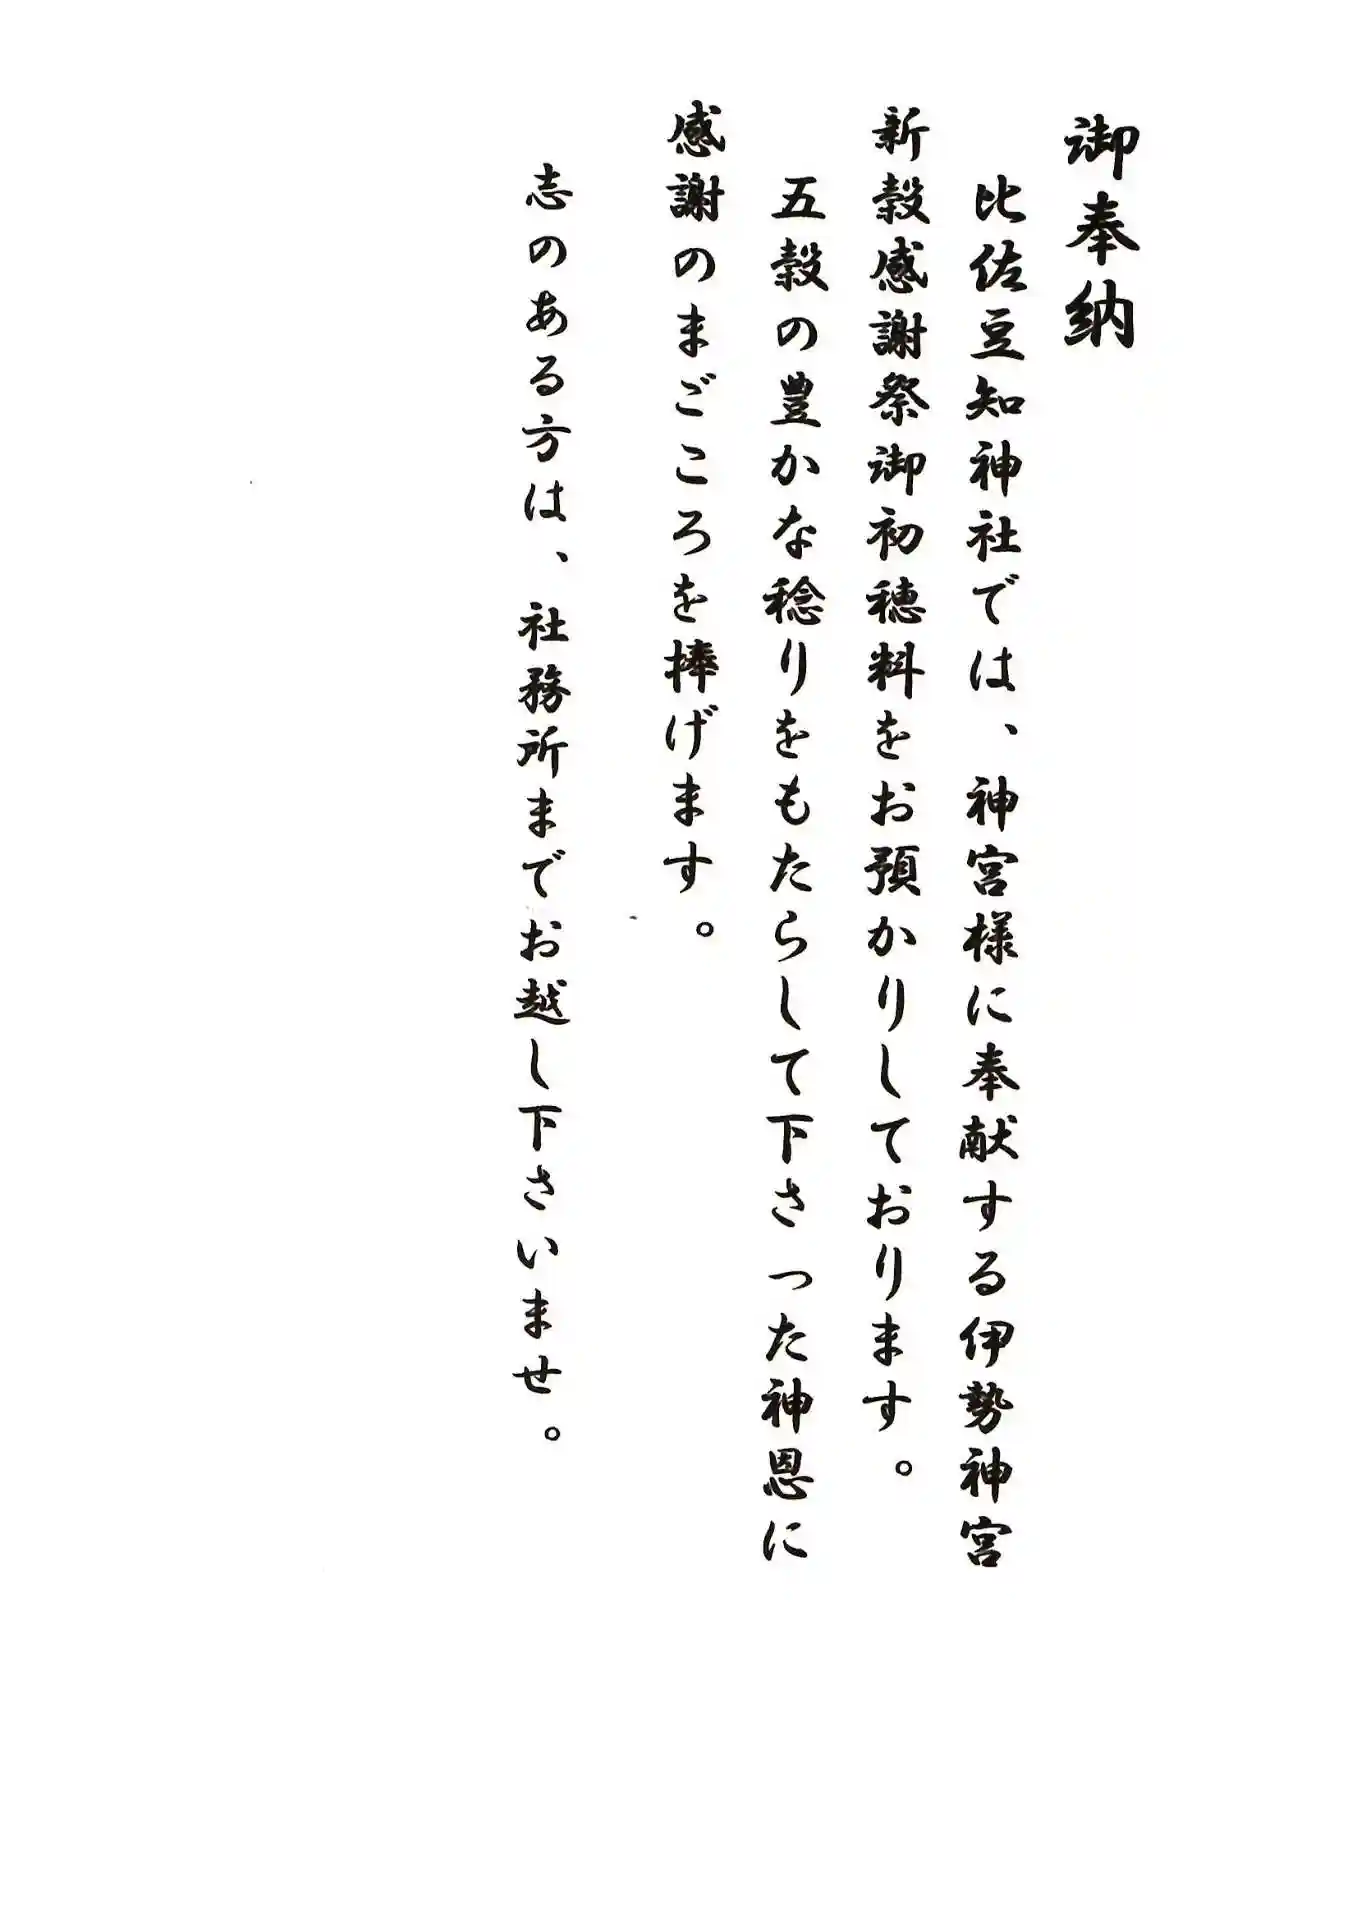 御奉納
比佐豆知神社では、神宮様に奉献する伊勢神宮
新穀感謝祭御初穂料をお預かりしております。
五穀の豊かな稔りをもたらして下さった神恩に
感謝のまごころを捧げます。
志のある方は、社務所までお越し下さいませ。